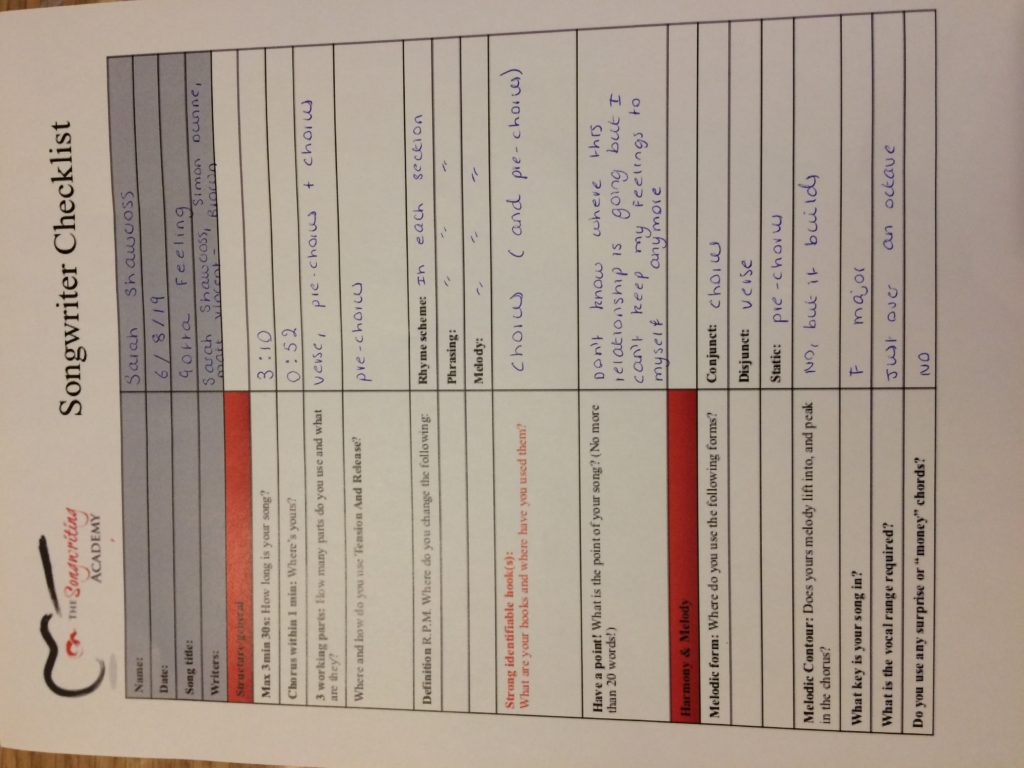 THE Songwriting
ACADEMY
Songwriter Checklist
Name: Sarah Shawcross
Date: 6/8/19
Song title: Gotta Feeling
Writers: Sarah Shawcross, Simon
Structure/general
Max 3min 30s: How long is your song? 3:10
Chorus within 1 min: Where's yours? 0:52
3 working parts: How many parts do you use and what
are they? verse, pre-chorus + chorus
Where and how do you use Tension And Release? pre-chorus
Definition R.P.M. Where do you change the following: Rhyme scheme: In each section
Phrasing: " " "
Melody: " " "
Strong identifiable hook(s):
What are your hooks and where have you used them? chorus (and pre-chorus)
Have a point! What is the point of your song? (No more
than 20 words!)
Don't know where this
relationship is going but I
can't keep my feelings to
myself anymore
Harmony & Melody
Melodic form: Where do you use the following forms? Conjunct: chorus
Disjunct: verse
Static: pre-chorus
Melodic Contour: Does yours melody lift into, and peak
in the chorus? No, but it builds
What key is your song in? F major
What is the vocal range required? Just over an octave
Do you use any surprise or "money" chords? NO